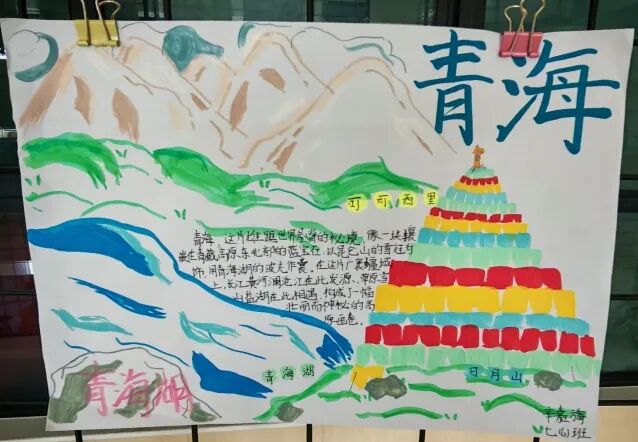 青海
可可西里
青海，这片住距世界屋脊的秘境，像一块镶
嵌在青藏高原东北部的蓝宝石，以昆仑山的雪冠为
饰，用青海湖的波光作裳，在这片广袤疆域
上，长江黄河澜沧江在此发源，草原与
山岳湖在此相遇，构成了一幅
壮丽而神秘的高
原画卷。
青海湖
日月山
青海湖
七、(6)班